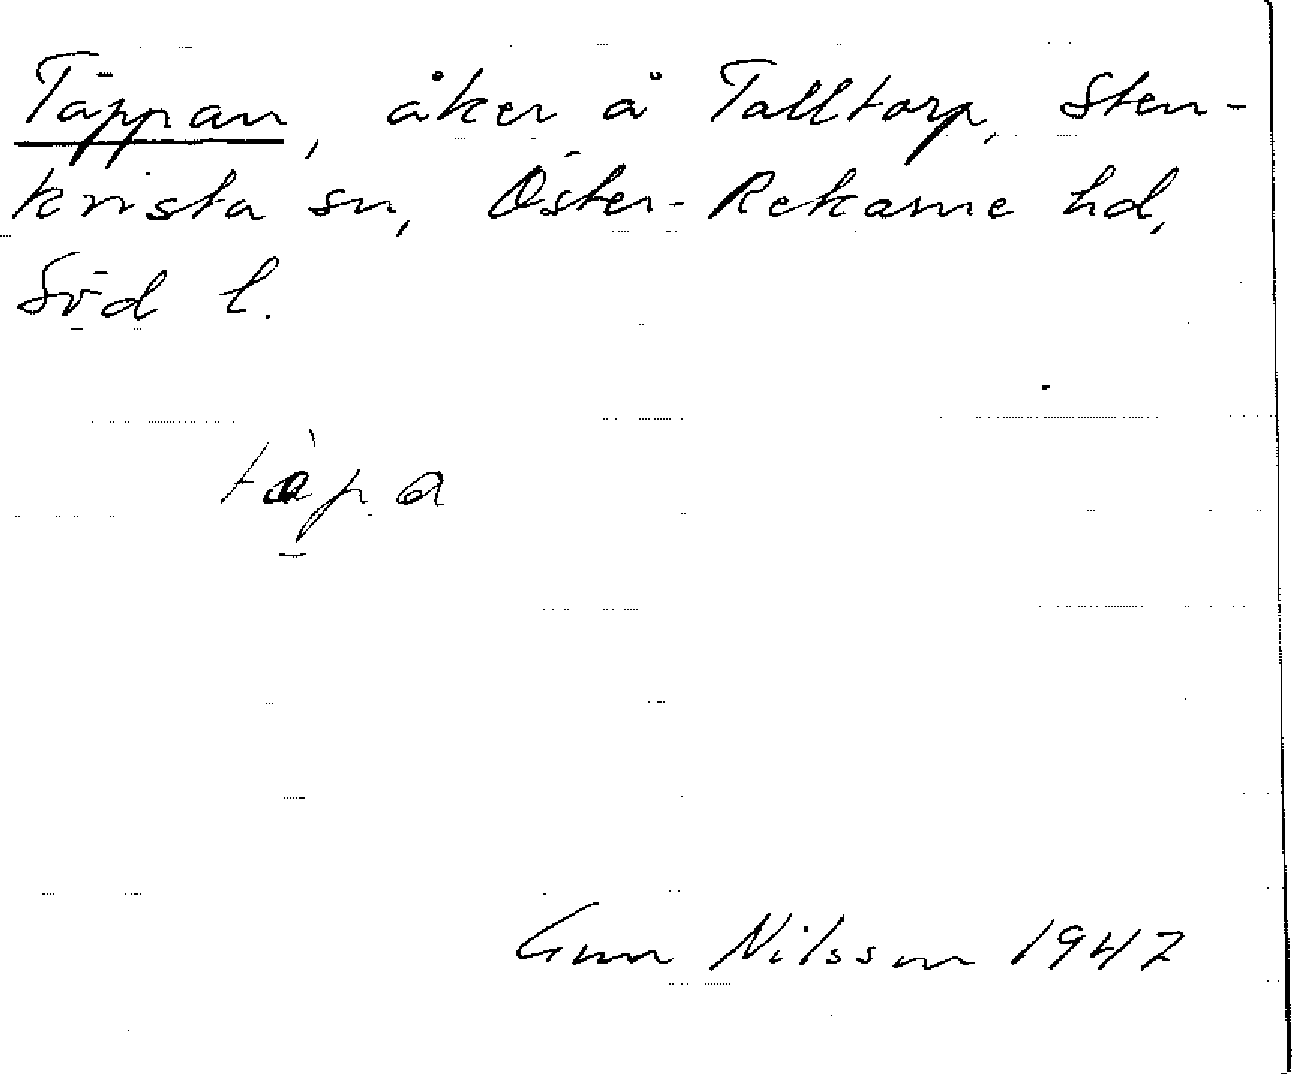 Täppan, åker å Talltorp, Sten-
kvista sn, Öster-Rekarne hd,
Söd l.
tæ̀p.a
Gun Nilsson 1947